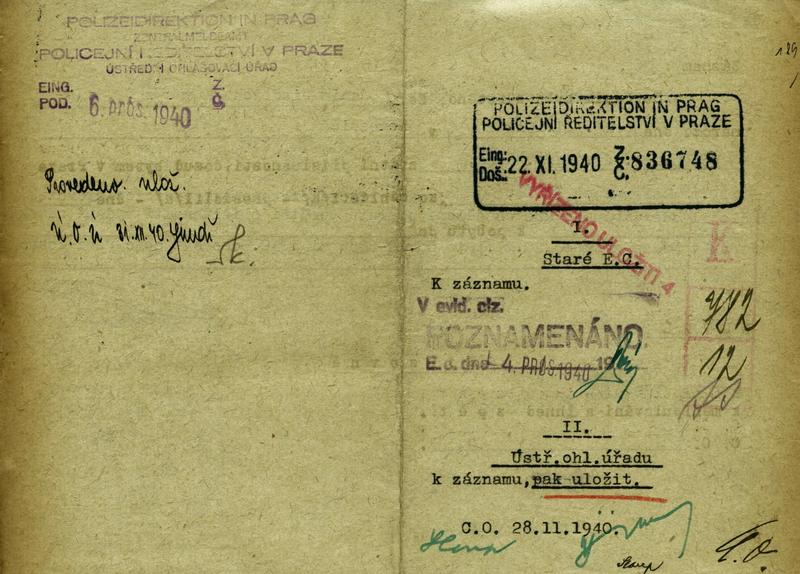 POLIZEIDIREKTION IN PRAG
ZENTRALMELDEAMT
POLICEJNÍ ŘEDITELSTVÍ V PRAZE
ÚSTŘEDNÍ OHLAŠOVACÍ ÚŘAD
EING.
POD. 6. pros. 1940
Z.
Č.
Provedeno. ulož.
Ú O Ú 31. XII. 40.
POLIZEIDIREKTION IN PRAG
POLICEJNÍ ŘEDITELSTVÍ V PRAZE
Eing.:
Doš.: 22. XI. 1940 Z.: Č. 836748
VYŘÍZENO ULOŽITI 4
I.
Staré E.C.
K
K záznamu.
V evid. ciz.
POZNAMENÁNO.
E. o. dne 4. PROS. 1940 19
782
12
II.
Ústř.ohl.úřadu
k záznamu, pak uložit.
C.O. 28.11.1940.